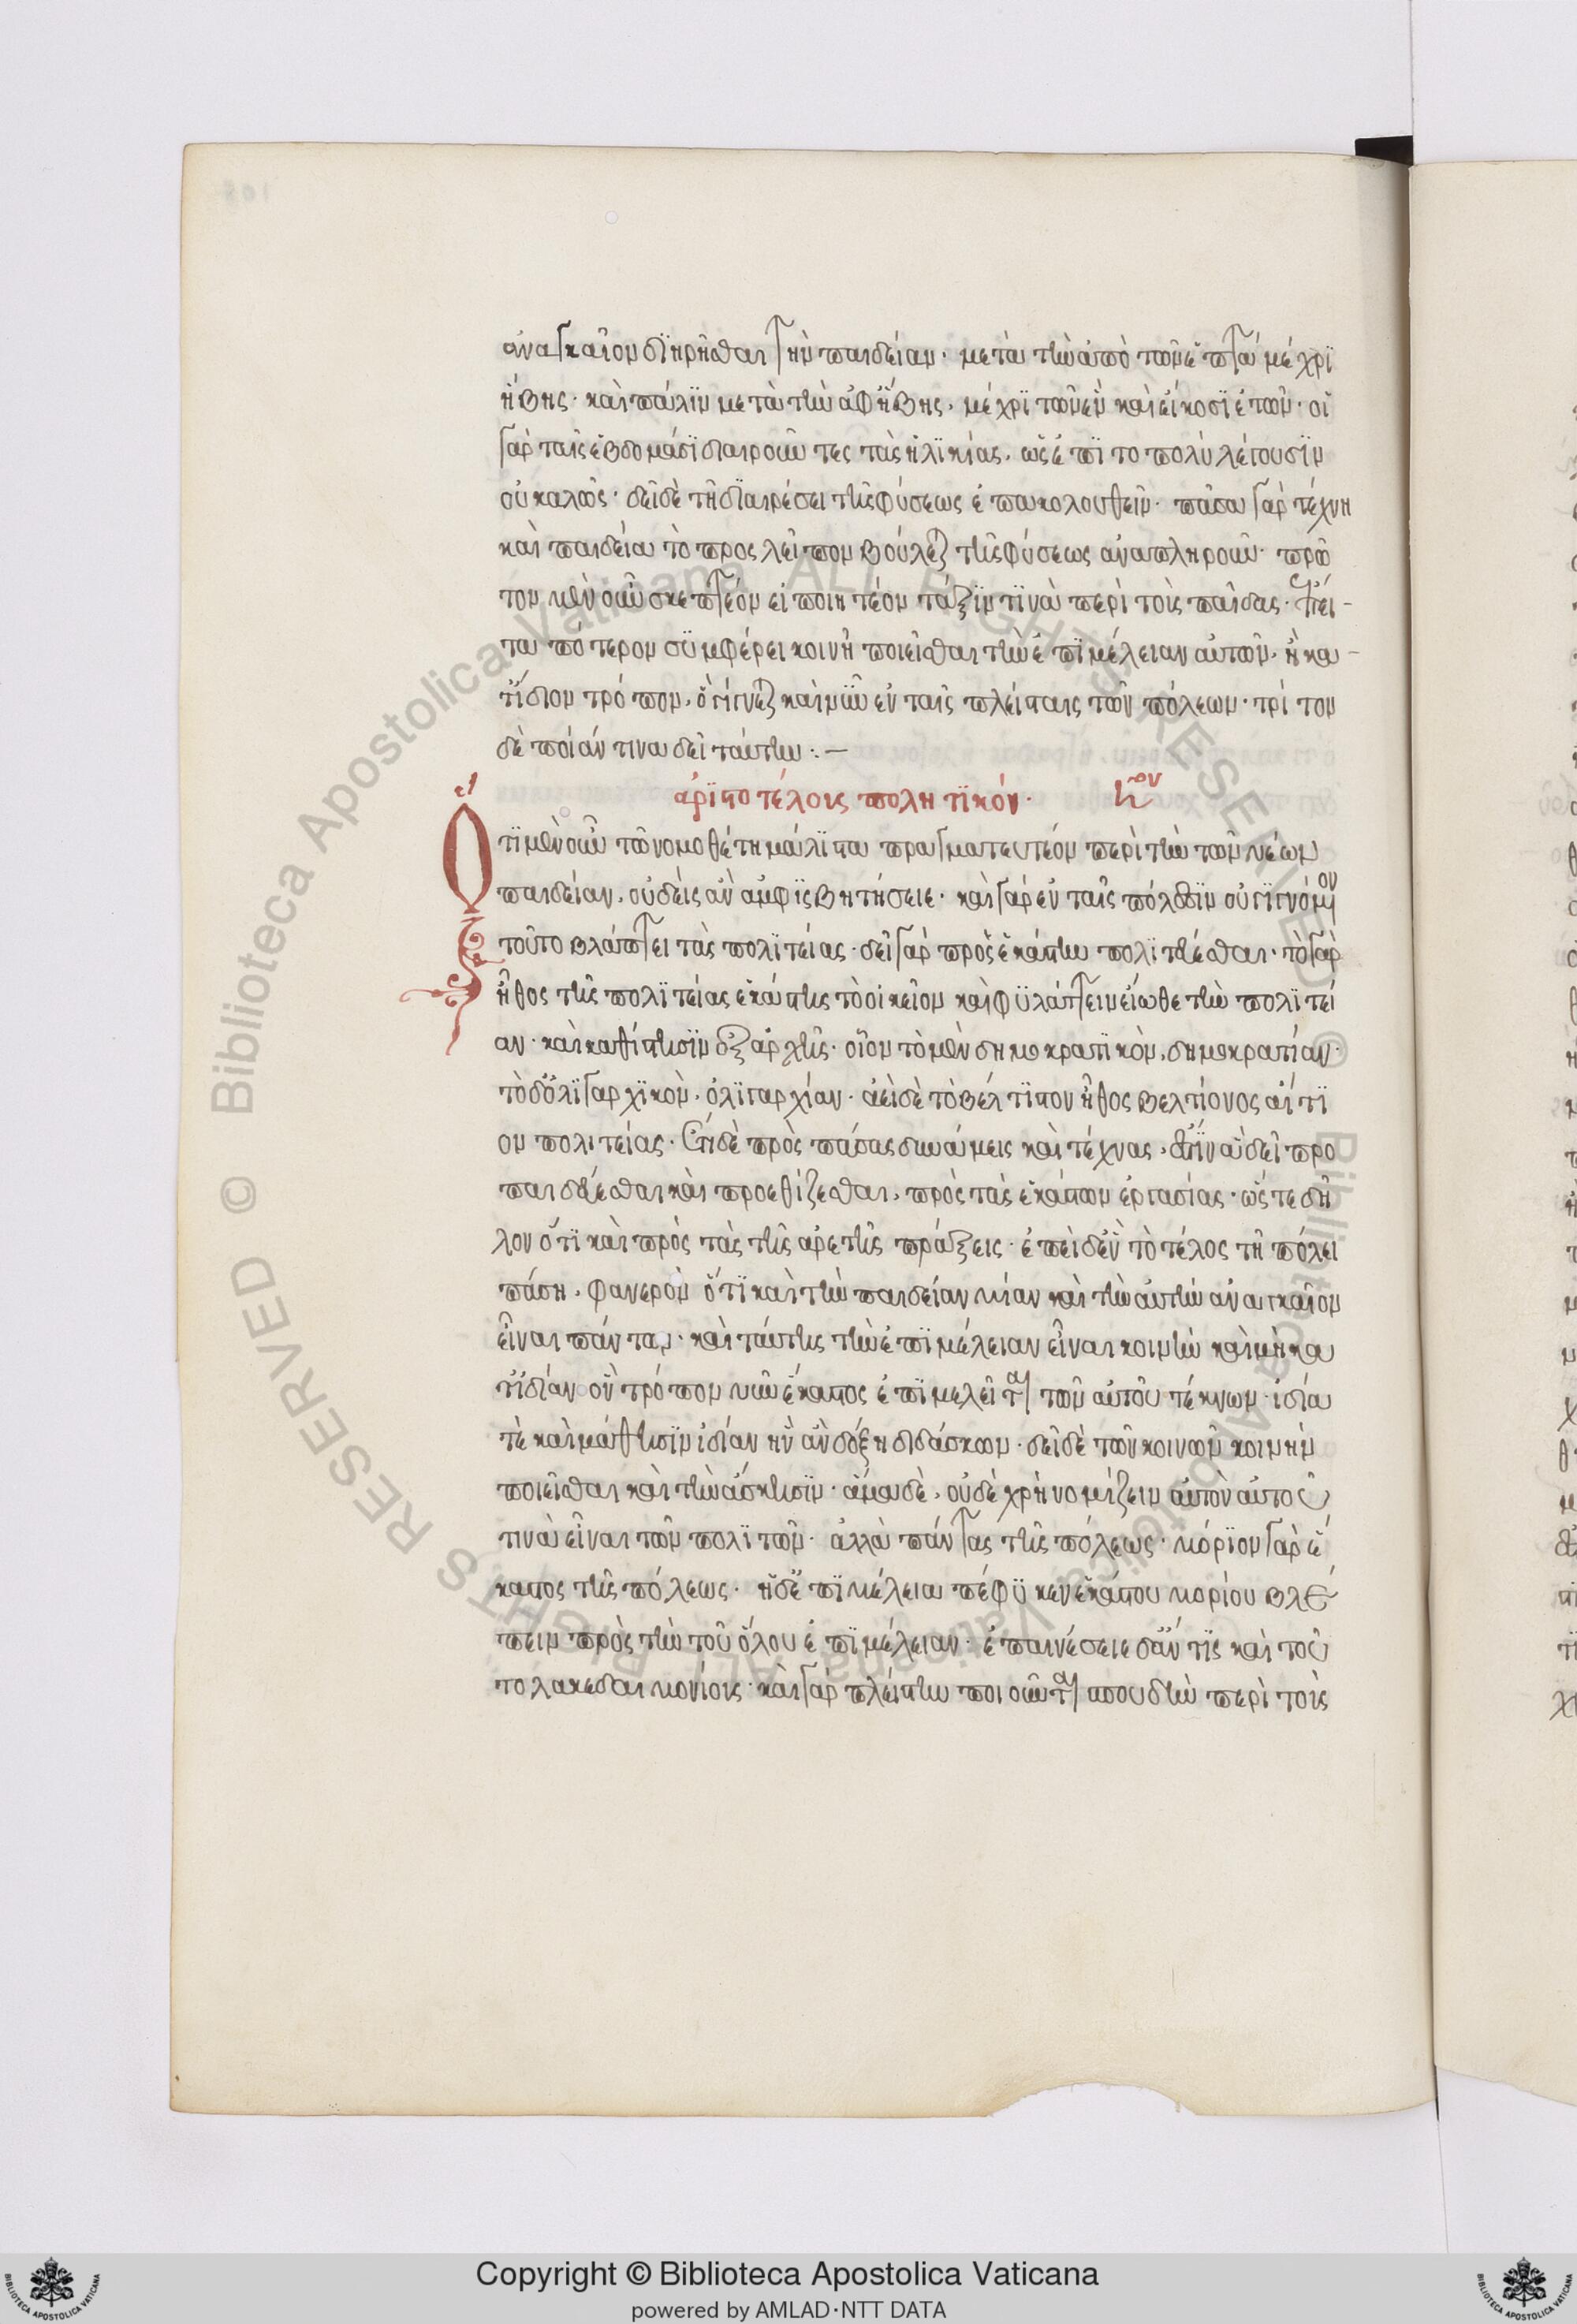 ἀναγκαῖον διῃρῆσθαι τὴν παιδείαν· μετὰ τὴν ἀπὸ τῶν ἑπτὰ μέχρι
ἥβης· καὶ πάλιν μετὰ τὴν ἀφ' ἥβης, μέχρι τῶν ἓν καὶ εἴκοσι ἐτῶν· οἱ
γὰρ ταῖς ἑβδομάσι διαιροῦντες τὰς ἡλικίας, ὡς ἐπὶ τὸ πολὺ λέγουσιν
οὐ καλῶς· δεῖ δὲ τῇ διαιρέσει τῆς φύσεως ἐπακολουθεῖν· πᾶσα γὰρ τέχνη
καὶ παιδεία τὸ προσλεῖπον βούλεται τῆς φύσεως ἀναπληροῦν· πρῶ
τον μὲν οὖν σκεπτέον εἰ ποιητέον τάξιν τινὰ περὶ τοὺς παῖδας· ἔπει-
τα πότερον συμφέρει κοινῇ ποιεῖσθαι τὴν ἐπιμέλειαν αὐτῶν, ἢ κα-
τ' ἴδιον τρόπον, ὃ γίγνεται καὶ νῦν ἐν ταῖς πλείσταις τῶν πόλεων· τρίτον
δὲ ποίαν τινὰ δεῖ ταύτην :. —
ἀριστοτέλους πολητικόν· η̄ον
Ὅτι μὲν οὖν τῷ νομοθέτῃ μάλιστα πραγματευτέον περὶ τὴν τῶν νέων
παιδείαν, οὐδεὶς ἂν ἀμφισβητήσειε· καὶ γὰρ ἐν ταῖς πόλεσιν οὐ γιγνόμενον
τοῦτο βλάπτει τὰς πολιτείας· δεῖ γὰρ πρὸς ἑκάστην πολιτεύεσθαι· τὸ γὰρ
ἦθος τῆς πολιτείας ἑκάστης τὸ οἰκεῖον καὶ φυλάττειν εἴωθε τὴν πολιτεί
αν· καὶ καθίστησιν ἐξ ἀρχῆς· οἷον τὸ μὲν δημοκρατικὸν, δημοκρατίαν·
τὸ δ' ὀλιγαρχικὸν, ὀλιγαρχίαν· ἀεὶ δὲ τὸ βέλτιστον ἦθος βελτίονος αἴτι
ον πολιτείας· ἔτι δὲ πρὸς πάσας δυνάμεις καὶ τέχνας, ἔστιν ἃ δεῖ προ
παιδεύεσθαι καὶ προεθίζεσθαι, πρὸς τὰς ἑκάστων ἐργασίας· ὥστε δῆ
λον ὅτι καὶ πρὸς τὰς τῆς ἀρετῆς πράξεις· ἐπεὶ δ' ἓν τὸ τέλος τῇ πόλει
πάσῃ, φανερὸν ὅτι καὶ τὴν παιδείαν μίαν καὶ τὴν αὐτὴν ἀναγκαῖον
εἶναι πάντων· καὶ ταύτης τὴν ἐπιμέλειαν εἶναι κοινὴν καὶ μὴ κα
τ' ἰδίαν ὃν τρόπον νῦν ἕκαστος ἐπιμελεῖται τῶν αὑτοῦ τέκνων ἰδίᾳ
τε καὶ μάθησιν ἰδίαν ἣν ἂν δόξῃ διδάσκων· δεῖ δὲ τῶν κοινῶν κοινὴν
ποιεῖσθαι καὶ τὴν ἄσκησιν· ἅμα δὲ, οὐδὲ χρὴ νομίζειν αὐτὸν αὑτοῦ
τινὰ εἶναι τῶν πολιτῶν· ἀλλὰ πάντας τῆς πόλεως· μόριον γὰρ ἕ
καστος τῆς πόλεως· ἡ δ' ἐπιμέλεια πέφυκεν ἑκάστου μορίου βλέ
πειν πρὸς τὴν τοῦ ὅλου ἐπιμέλειαν· ἐπαινέσειε δ' ἄν τις καὶ τοῦ
το λακεδαιμονίοις· καὶ γὰρ πλείστην ποιοῦνται σπουδὴν περὶ τοὺς
Copyright © Biblioteca Apostolica Vaticana
powered by AMLAD·NTT DATA